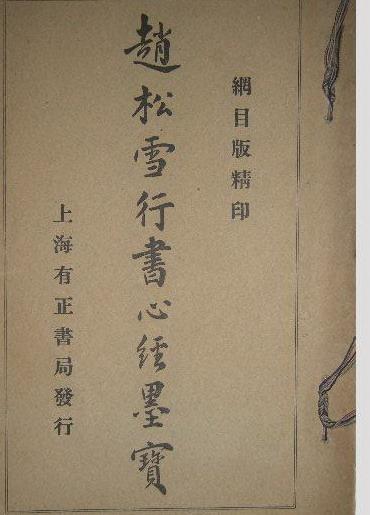 網目版精印
趙松雪行書心經墨寶
上海有正書局發行